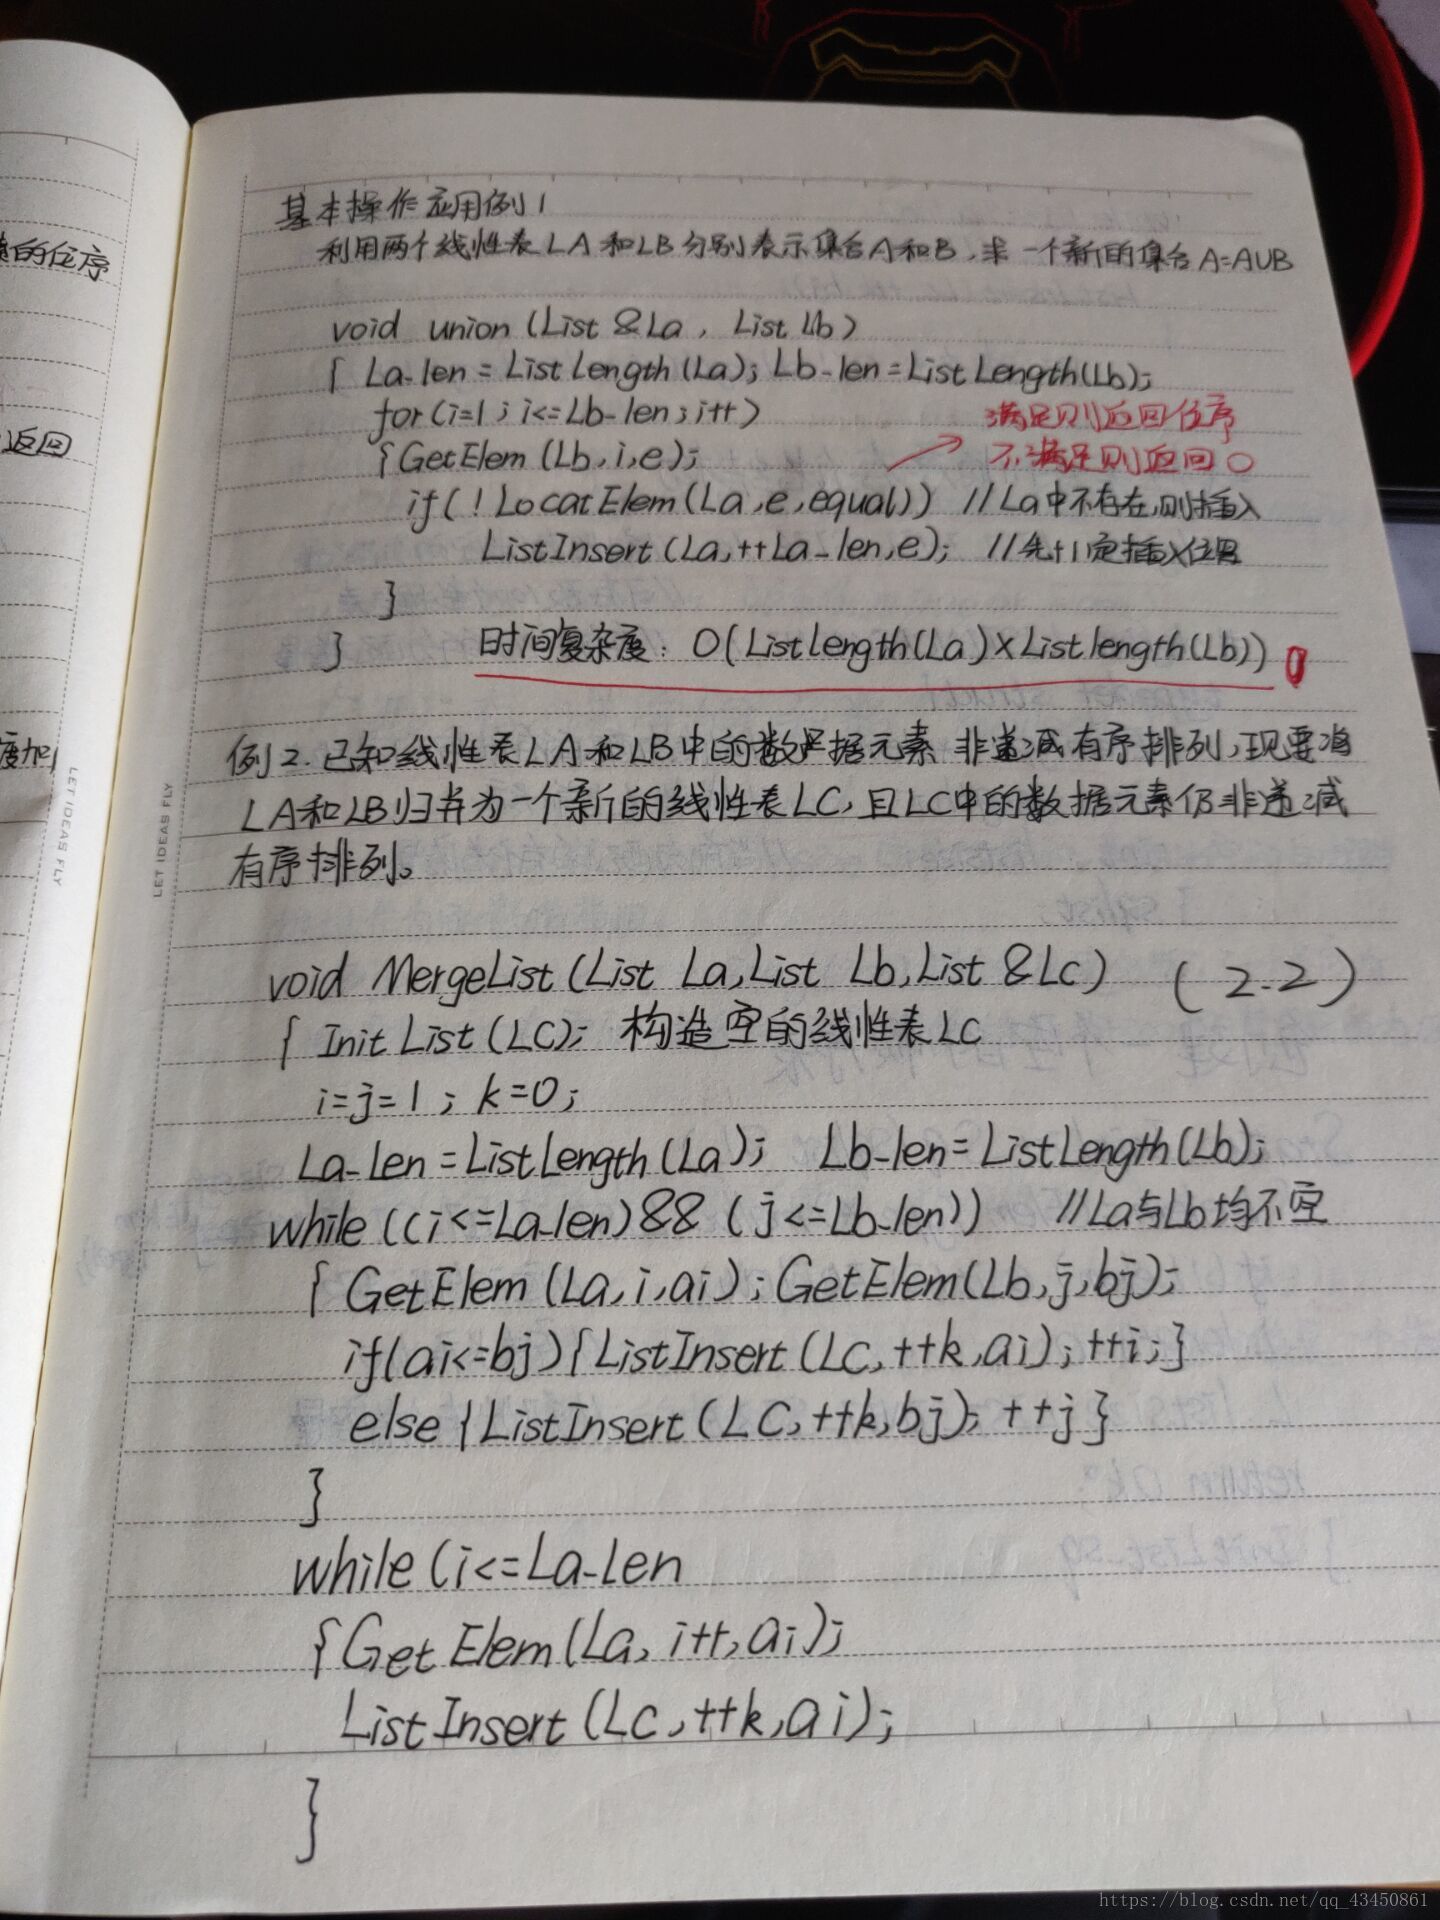 的位序
返回
度加
LET IDEAS FLY
LET IDEAS FLY
基本操作应用例1
利用两个线性表LA和LB分别表示集合A和B，求一个新的集合A=AUB
void union (List &La , List Lb)
{ La-len = List Length (La); Lb-len = List Length(Lb);
for(i=1; i<=Lb-len; i++)
满足则返回位序
{ GetElem (Lb, i, e);
不满足则返回0
if( ! LocatElem(La, e, equal)) //La中不存在,则插入
ListInsert (La, ++La-len, e); //先+1定插入位置
}
} 时间复杂度: O(ListLength(La)×Listlength(Lb))
例2. 已知线性表LA和LB中的数据元素 非递减有序排列,现要将
LA和LB归并为一个新的线性表LC,且LC中的数据元素仍非递减
有序排列。
void MergeList (List La, List Lb, List &Lc) (2.2)
{ Init List (LC); 构造空的线性表LC
i=j=1 ; k=0;
La-len = ListLength (La); Lb-len = ListLength(Lb);
while ((i<=La-len)&& (j<=Lb-len)) //La与Lb均不空
{ GetElem (La, i, ai); GetElem(Lb, j, bj);
if(ai<=bj){ListInsert (Lc, ++k, ai); ++i;}
else {ListInsert (LC, ++k, bj); ++j}
}
while (i<=La-len
{ Get Elem (La, i++, ai);
ListInsert (Lc, ++k, ai);
}
https://blog.csdn.net/qq_43450861